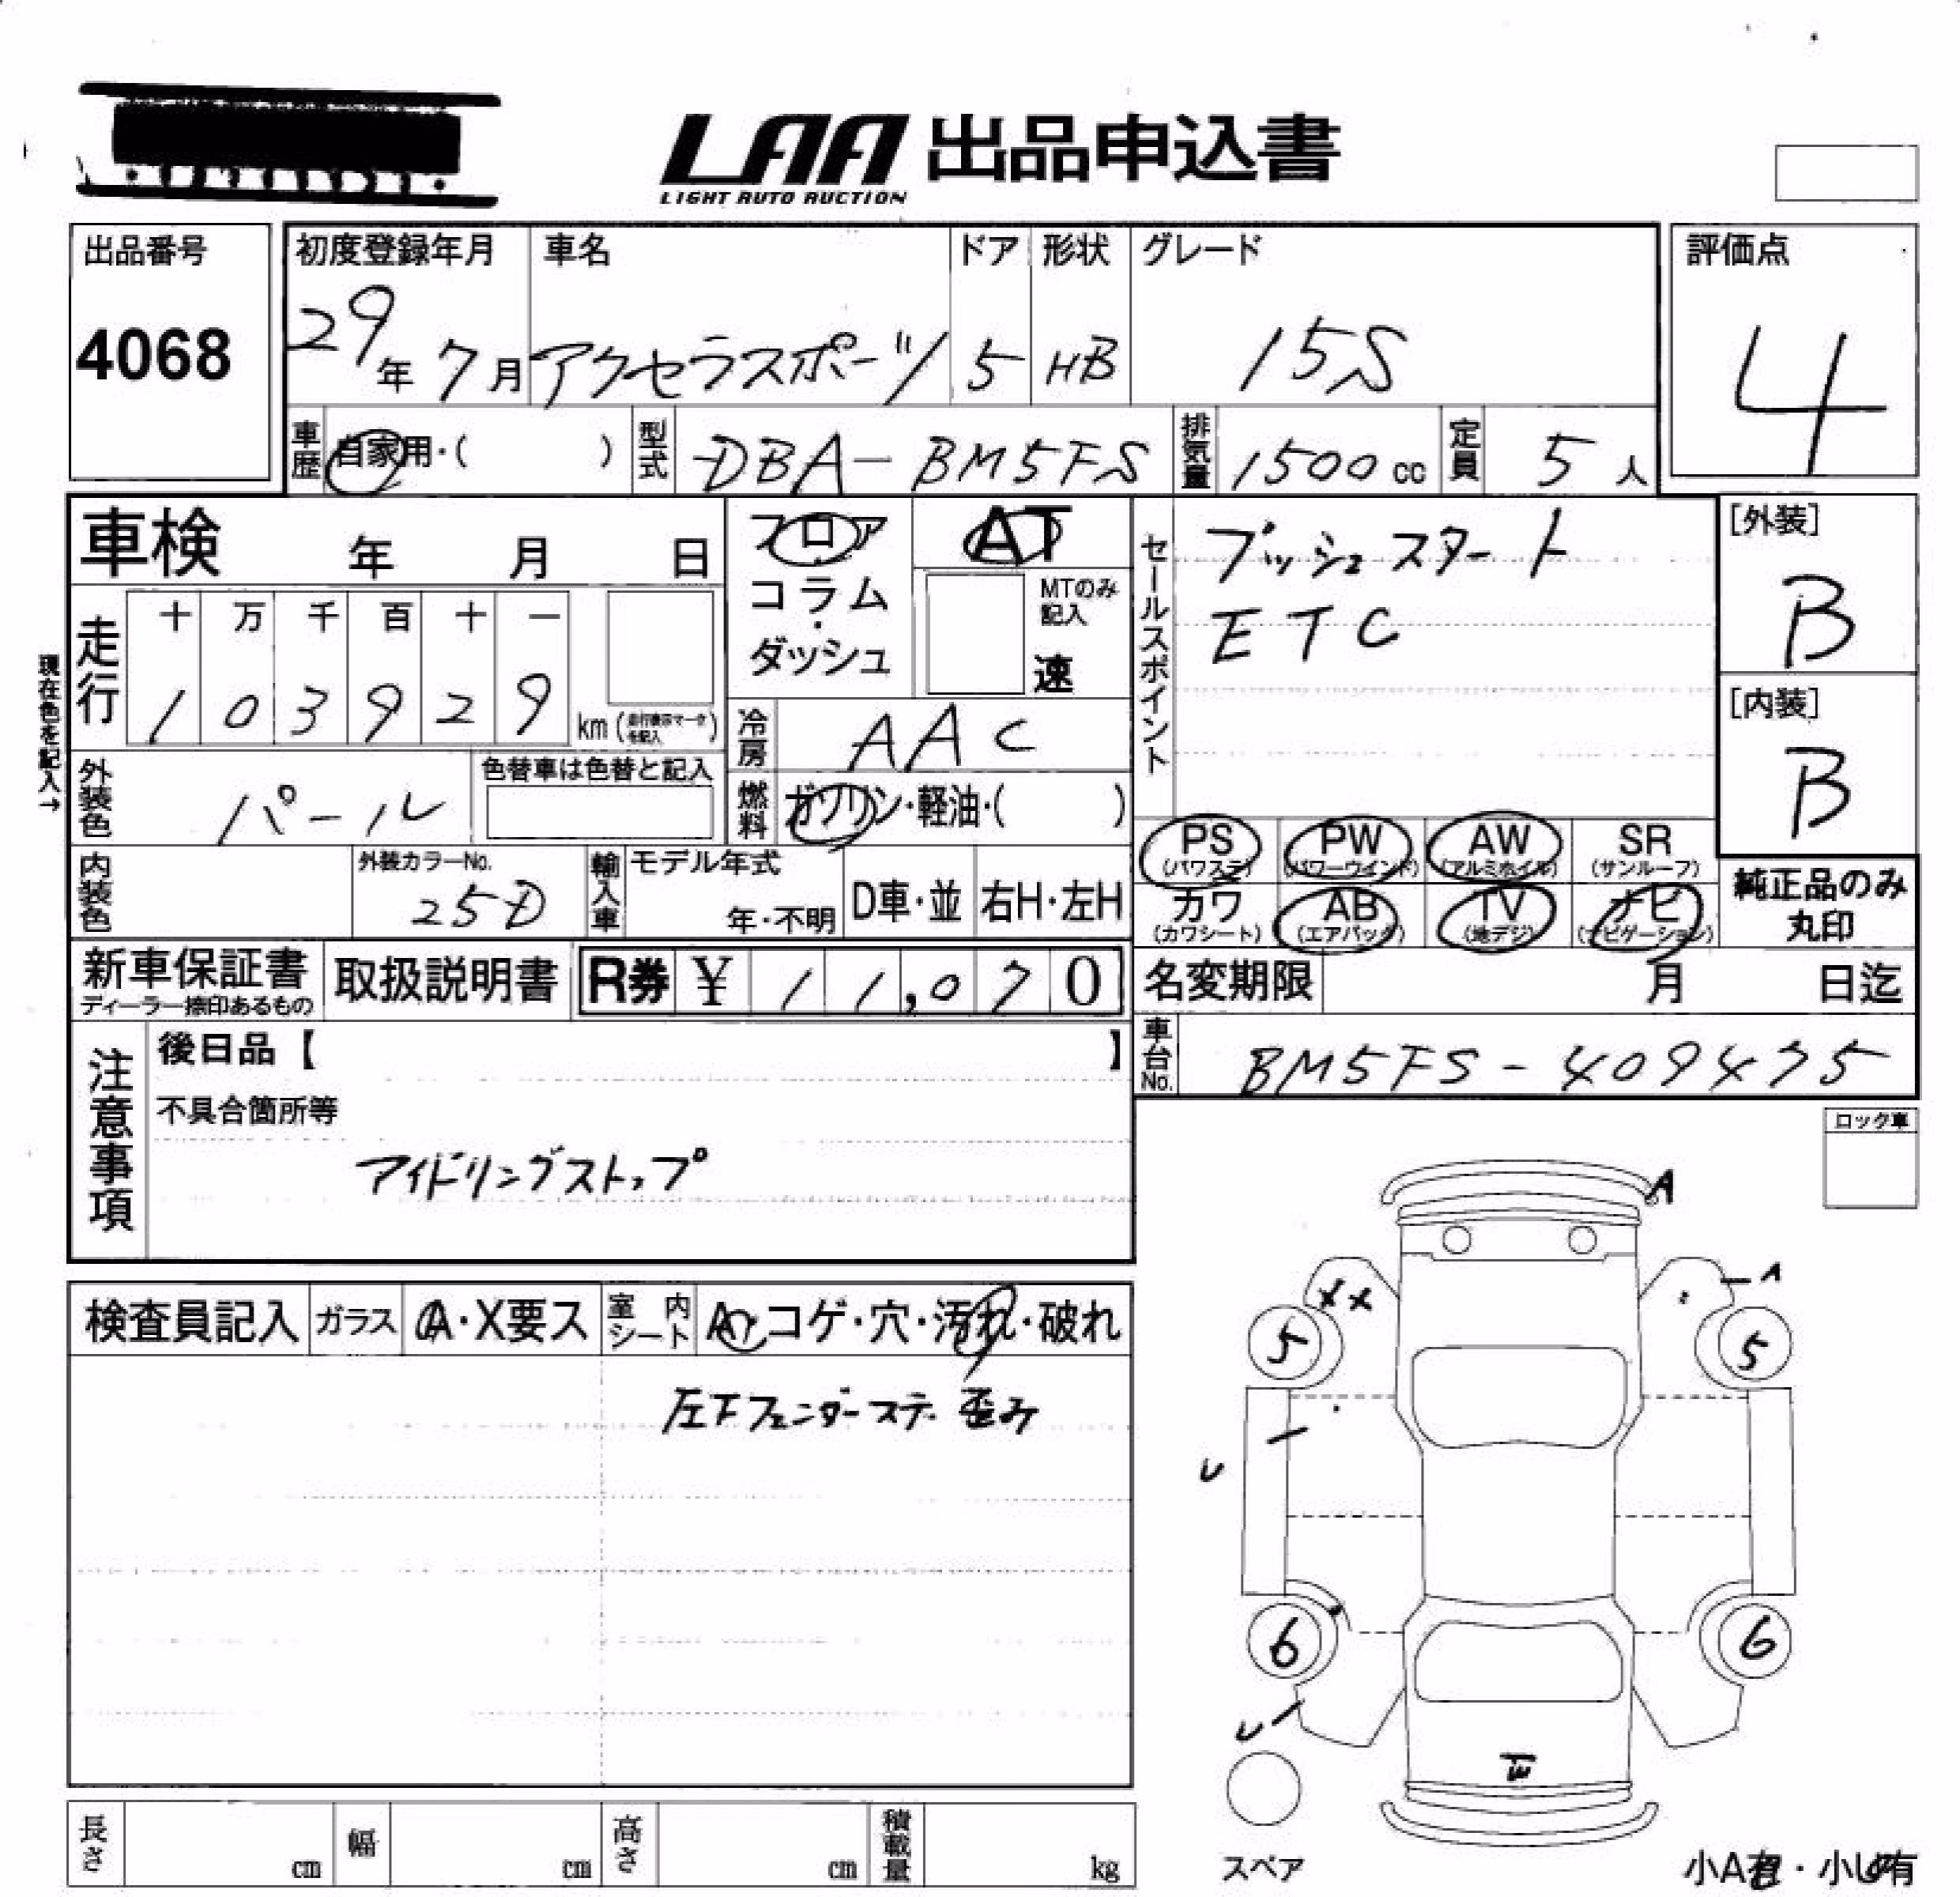 LAA 出品申込書
LIGHT AUTO AUCTION
出品番号
4068
初度登録年月
29年 7月
車名
アクセラスポーツ
ドア
5
形状
HB
グレード
15S
評価点
4
車歴
自家用・( )
型式
DBA-BM5FS
排気量
1500cc
定員
5人
車検 年 月 日
フロア
・
コラム
・
ダッシュ
AT
MTのみ
記入
速
セールスポイント
プッシュスタート
ETC
[外装]
B
[内装]
B
現在色を記入→
走行
十 万 千 百 十 一
1 0 3 9 2 9 km
冷房
AAC
外装色
パール
色替車は色替と記入
燃料
ガソリン・軽油・( )
PS
(パワステ)
PW
(パワーウインド)
AW
(アルミホイル)
SR
(サンルーフ)
内装色
外装カラーNo.
25D
輸入車
モデル年式
年・不明
D車・並
右H・左H
カワ
(カワシート)
AB
(エアバック)
TV
(地デジ)
ナビ
(ナビゲーション)
純正品のみ
丸印
新車保証書
ディーラー捺印あるもの
取扱説明書
R券 ¥ 11,070
名変期限 月 日迄
車台No.
BM5FS-409475
注意事項
後日品【 】
不具合箇所等
アイドリングストップ
ロック車
検査員記入
ガラス
A・X要ス
室内シート
A・コゲ・穴・汚れ・破れ
左Fフェンダーステー歪み
A
A
XX
5
5
U
6
6
U
スペア
長さ cm
幅 cm
高さ cm
積載量 kg
小A有・小U有